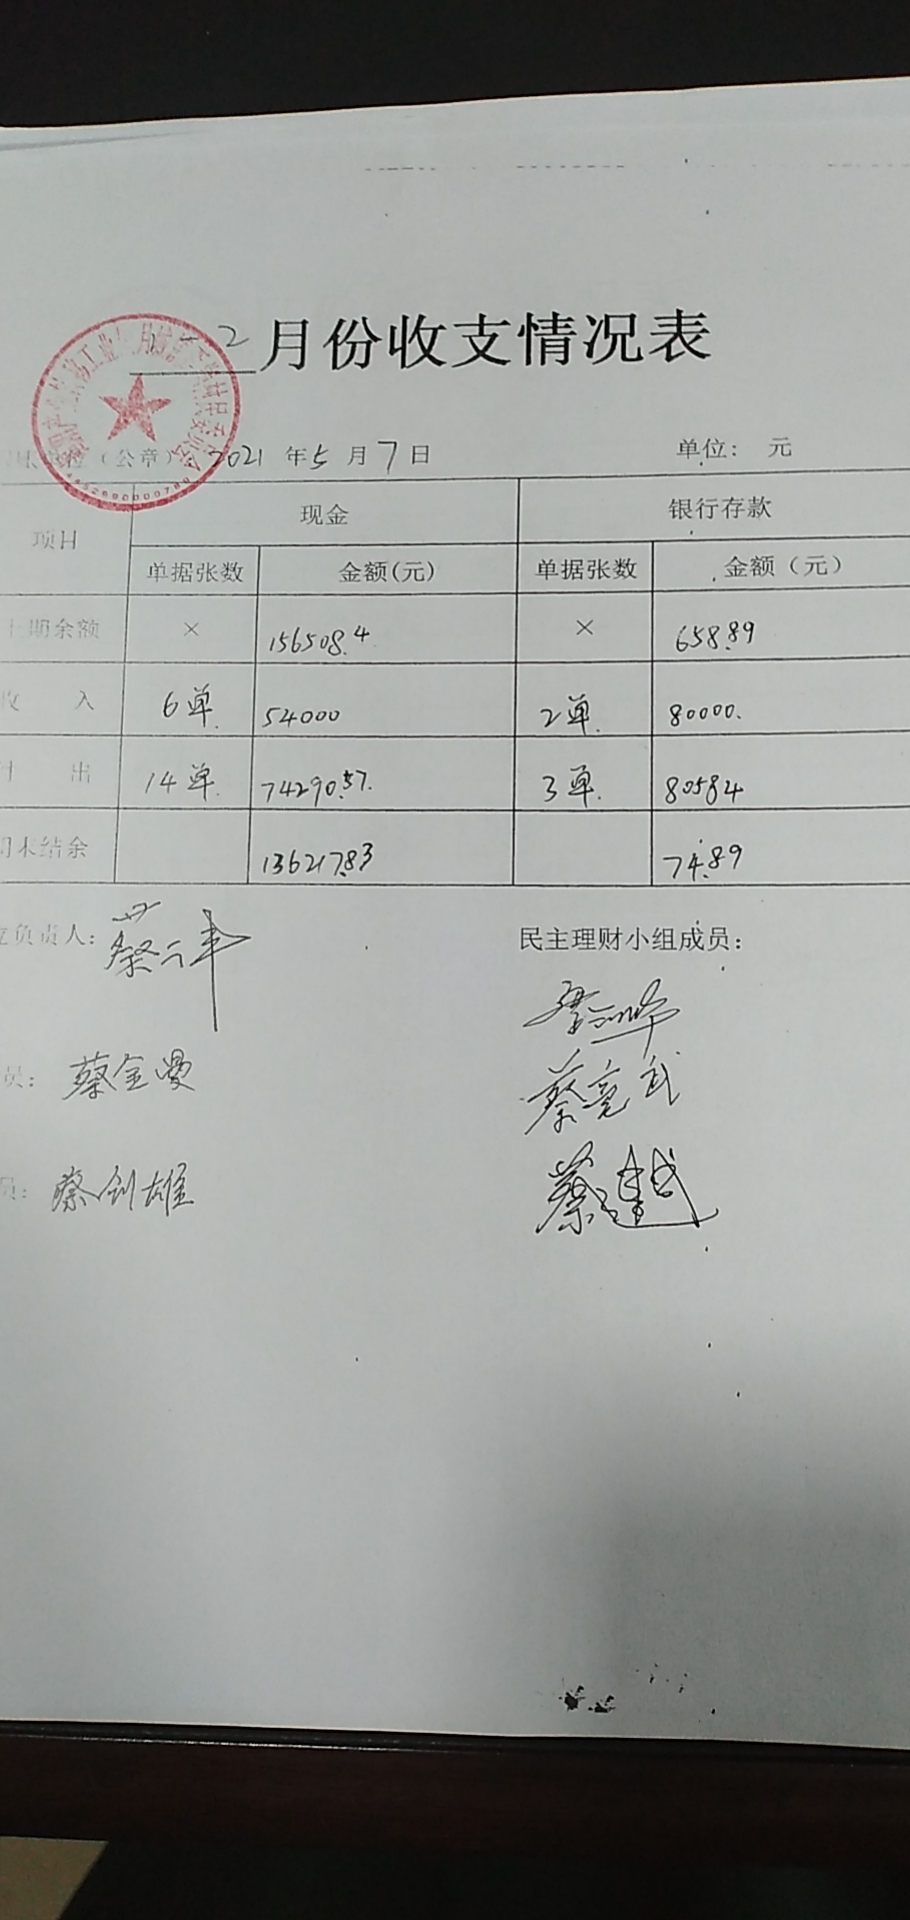 2 月份收支情况表
(公章) 2021 年 5 月 7 日 单位: 元
项目 现金 银行存款
单据张数 金额(元) 单据张数 金额（元）
上期余额 × 156508.4 × 658.89
收 入 6单. 54000 2单. 80000.
出 14单. 74290.57. 3单. 80584
期末结余 136217.83 74.89
负责人: 民主理财小组成员:
员: 蔡金曼
蔡亮武
员: 蔡剑雄
蔡
4452890000789